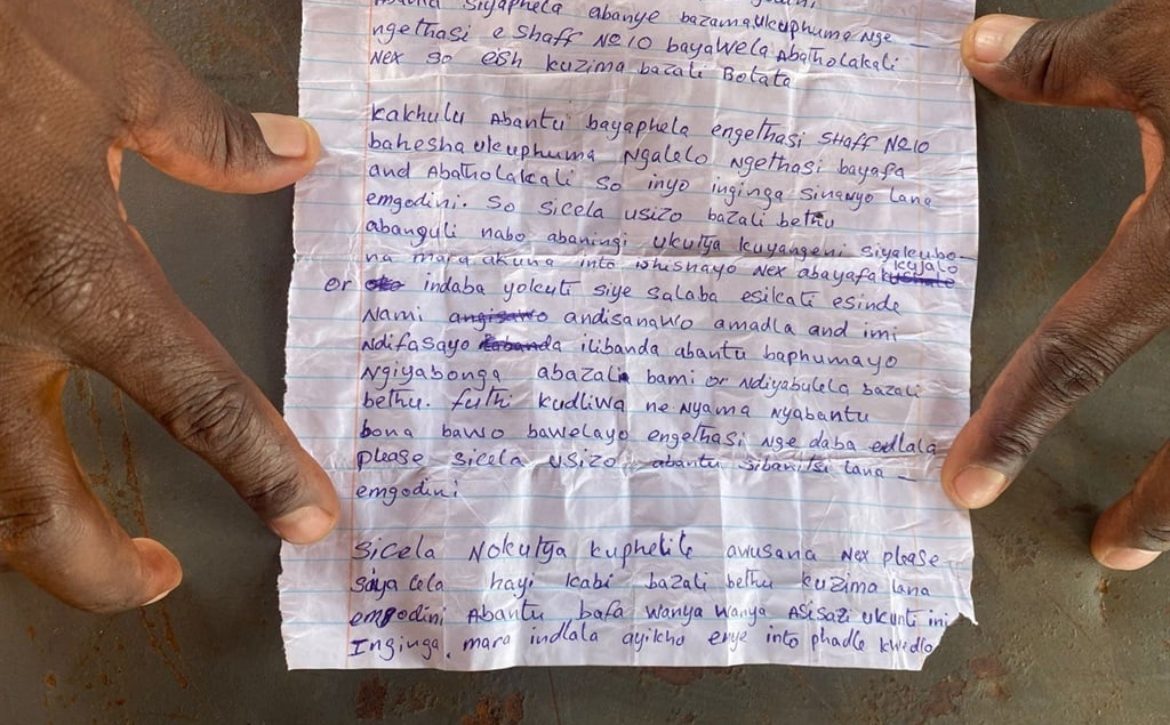 siyaphela abanye bazama ukuphuma nge
ngethasi e shaff No10 bayawela Abatholakali
Nex so esh kuzima bazali Botata
kakhulu Abantu bayaphela engethasi SHaff No10
bahesha ukuphuma Ngalelo Ngethasi bayafa
and Abatholakali so inyo inginga sinanyo lana
emgodini. So sicela usizo bazali bethu
abanguli nabo abaningi ukutya kuyangeni siyakubo
na mara akuna into ishisnayo Nex abayafa kujalo
or indaba yokuti siye salaba esikati esinde
Nami angisawo andisanawo amadla and imi
Ndifasayo ilibanda abantu baphumayo
Ngiyabonga abazali bami or Ndiyabulela bazali
bethu. futhi kudliwa ne Nyama Nyabantu
bona bawo bawelayo engethasi Nge daba edlala
please sicela usizo abantu sibanitsi lana
emgodini
Sicela Nokutya kuphelile awusana Nex please
saya cela hayi kabi bazali bethu kuzima lana
emgodini Abantu bafa wanya wanya ASisazi ukunti ini
Inginga. mara indlala ayikho enye into phadle kwedlo